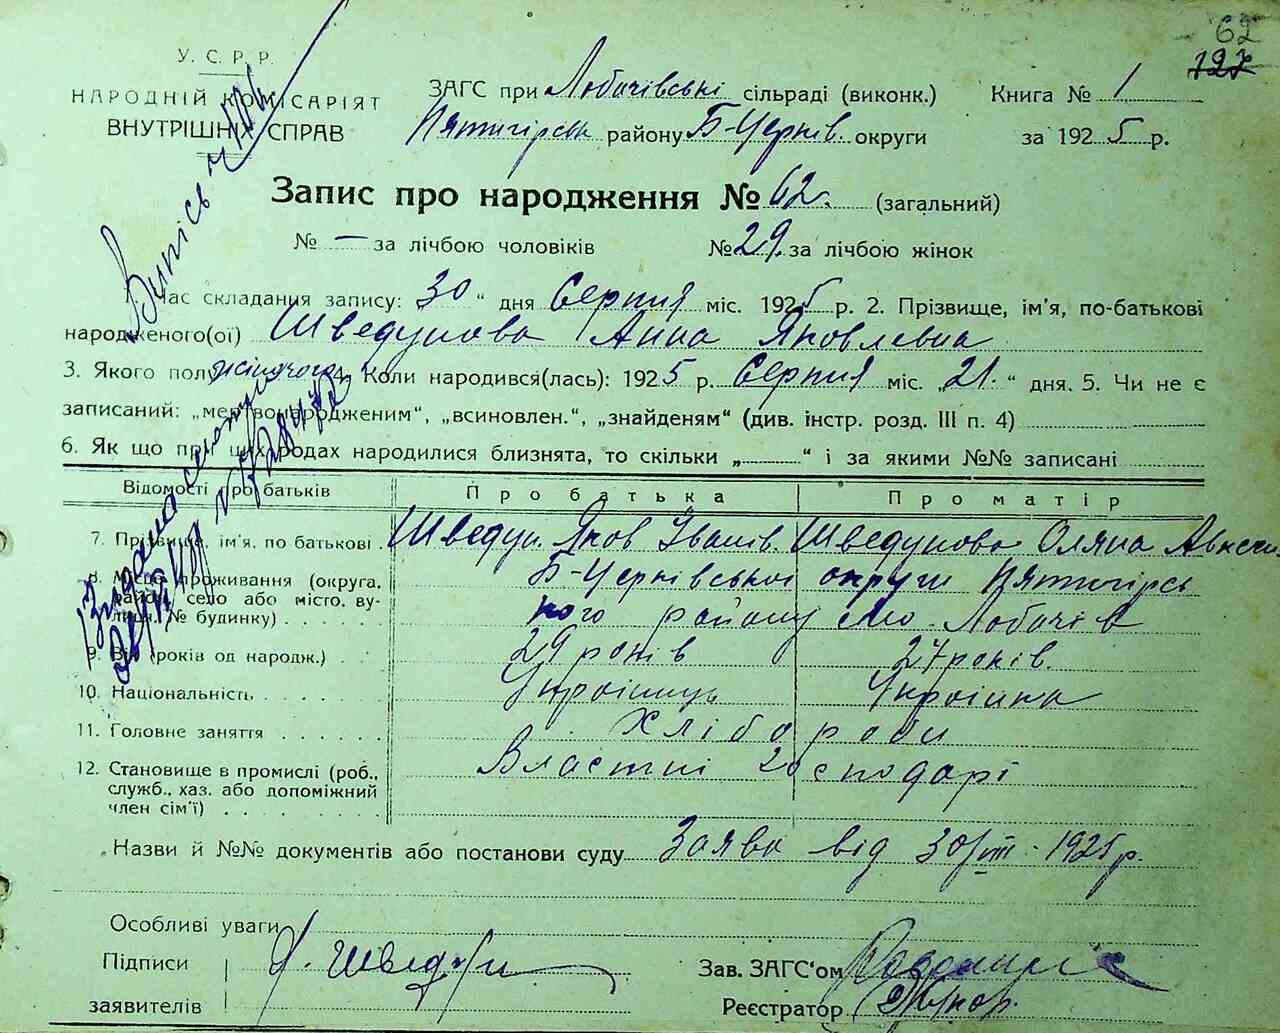 62
127
У. С. Р. Р.
НАРОДНІЙ КОМІСАРІЯТ
ВНУТРІШНІХ СПРАВ
ЗАГС при Лобачівські сільраді (виконк.) Книга № 1
Пятигірськ району Б-Церків. округи за 1925 р.
Запис про народження № 62. (загальний)
№ — за лічбою чоловіків № 29. за лічбою жінок
1. Час складання запису: 30 " дня Серпня міс. 1925 р. 2. Прізвище, ім'я, по-батькові
народженого(ої) Шведунова Анна Яковлевна
3. Якого полу жіночого 4. Коли народився(лась): 1925 р. Серпня міс. „21." дня. 5. Чи не є
записаний: „мертвонародженим", „всиновлен.", „знайденям" (див. інстр. розд. III п. 4)
6. Як що при цих родах народилися близнята, то скільки „ " і за якими №№ записані
Відомості про батьків Про батька Про матір
7. Прізвище, ім'я, по батькові Шведун Яков Іванів. Шведунова Оляна
8. Місце проживання (округа, Б-Церківської округи Пятигірсь
район, село або місто, ву- кого району село Лобачів
лиця, № будинку)
9. Вік (років од народж.) 29 років 27 років.
10. Національність Українць Українка
11. Головне заняття Хлібороби
12. Становище в промислі (роб., Властні господарі
служб., хаз. або допоміжний
член сім'ї)
Назви й №№ документів або постанови суду Заява від 30/VIII-1925 р.
Особливі уваги
Підписи
заявителів
Зав. ЗАГС'ом
Реєстратор
Випись
Видана